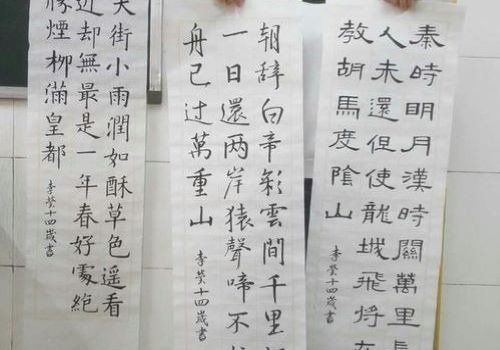 秦時明月漢時關萬里長
人未還但使龍城飛將在
教胡馬度陰山
李十四歲書
朝辭白帝彩雲間千里
一日還两岸猿聲啼不
舟已過萬重山
李十四歲書
天街小雨潤如酥草色遥看
近却無最是一年春好處絕
勝煙柳滿皇都
李十四歲書